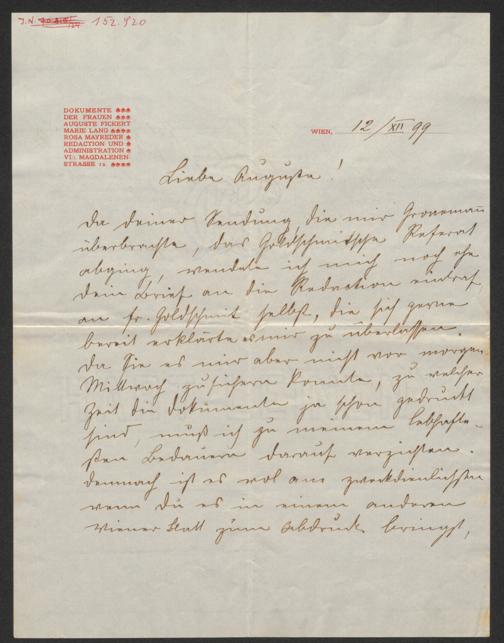 J.N. 152.920
DOKUMENTE
DER FRAUEN
AUGUSTE FICKERT
MARIE LANG
ROSA MAYREDER
REDACTION UND
ADMINISTRATION
VI/1 MAGDALENEN-
STRASSE 12.
WIEN, 12/XII 99
Liebe Auguste!
Da deiner Sendung, die mir Gronemann
überbrachte, das Goldschmitsche Referat
abging, wendete ich mich noch ehe
dein Brief an die Redaction eintraf
an Fr. Goldschmit selbst, die sich gerne
bereit erklärte es mir zu überlassen.
Da sie es mir aber nicht vor morgen
Mittwoch zusichern konnte, zu welcher
Zeit die Dokumente ja schon gedruckt
sind, muß ich zu meinem lebhafte-
sten Bedauern darauf verzichten.
Demnach ist es wol am zweckdienlichsten
wenn du es in einem anderen
Wiener Blatt zum Abdruck bringst,